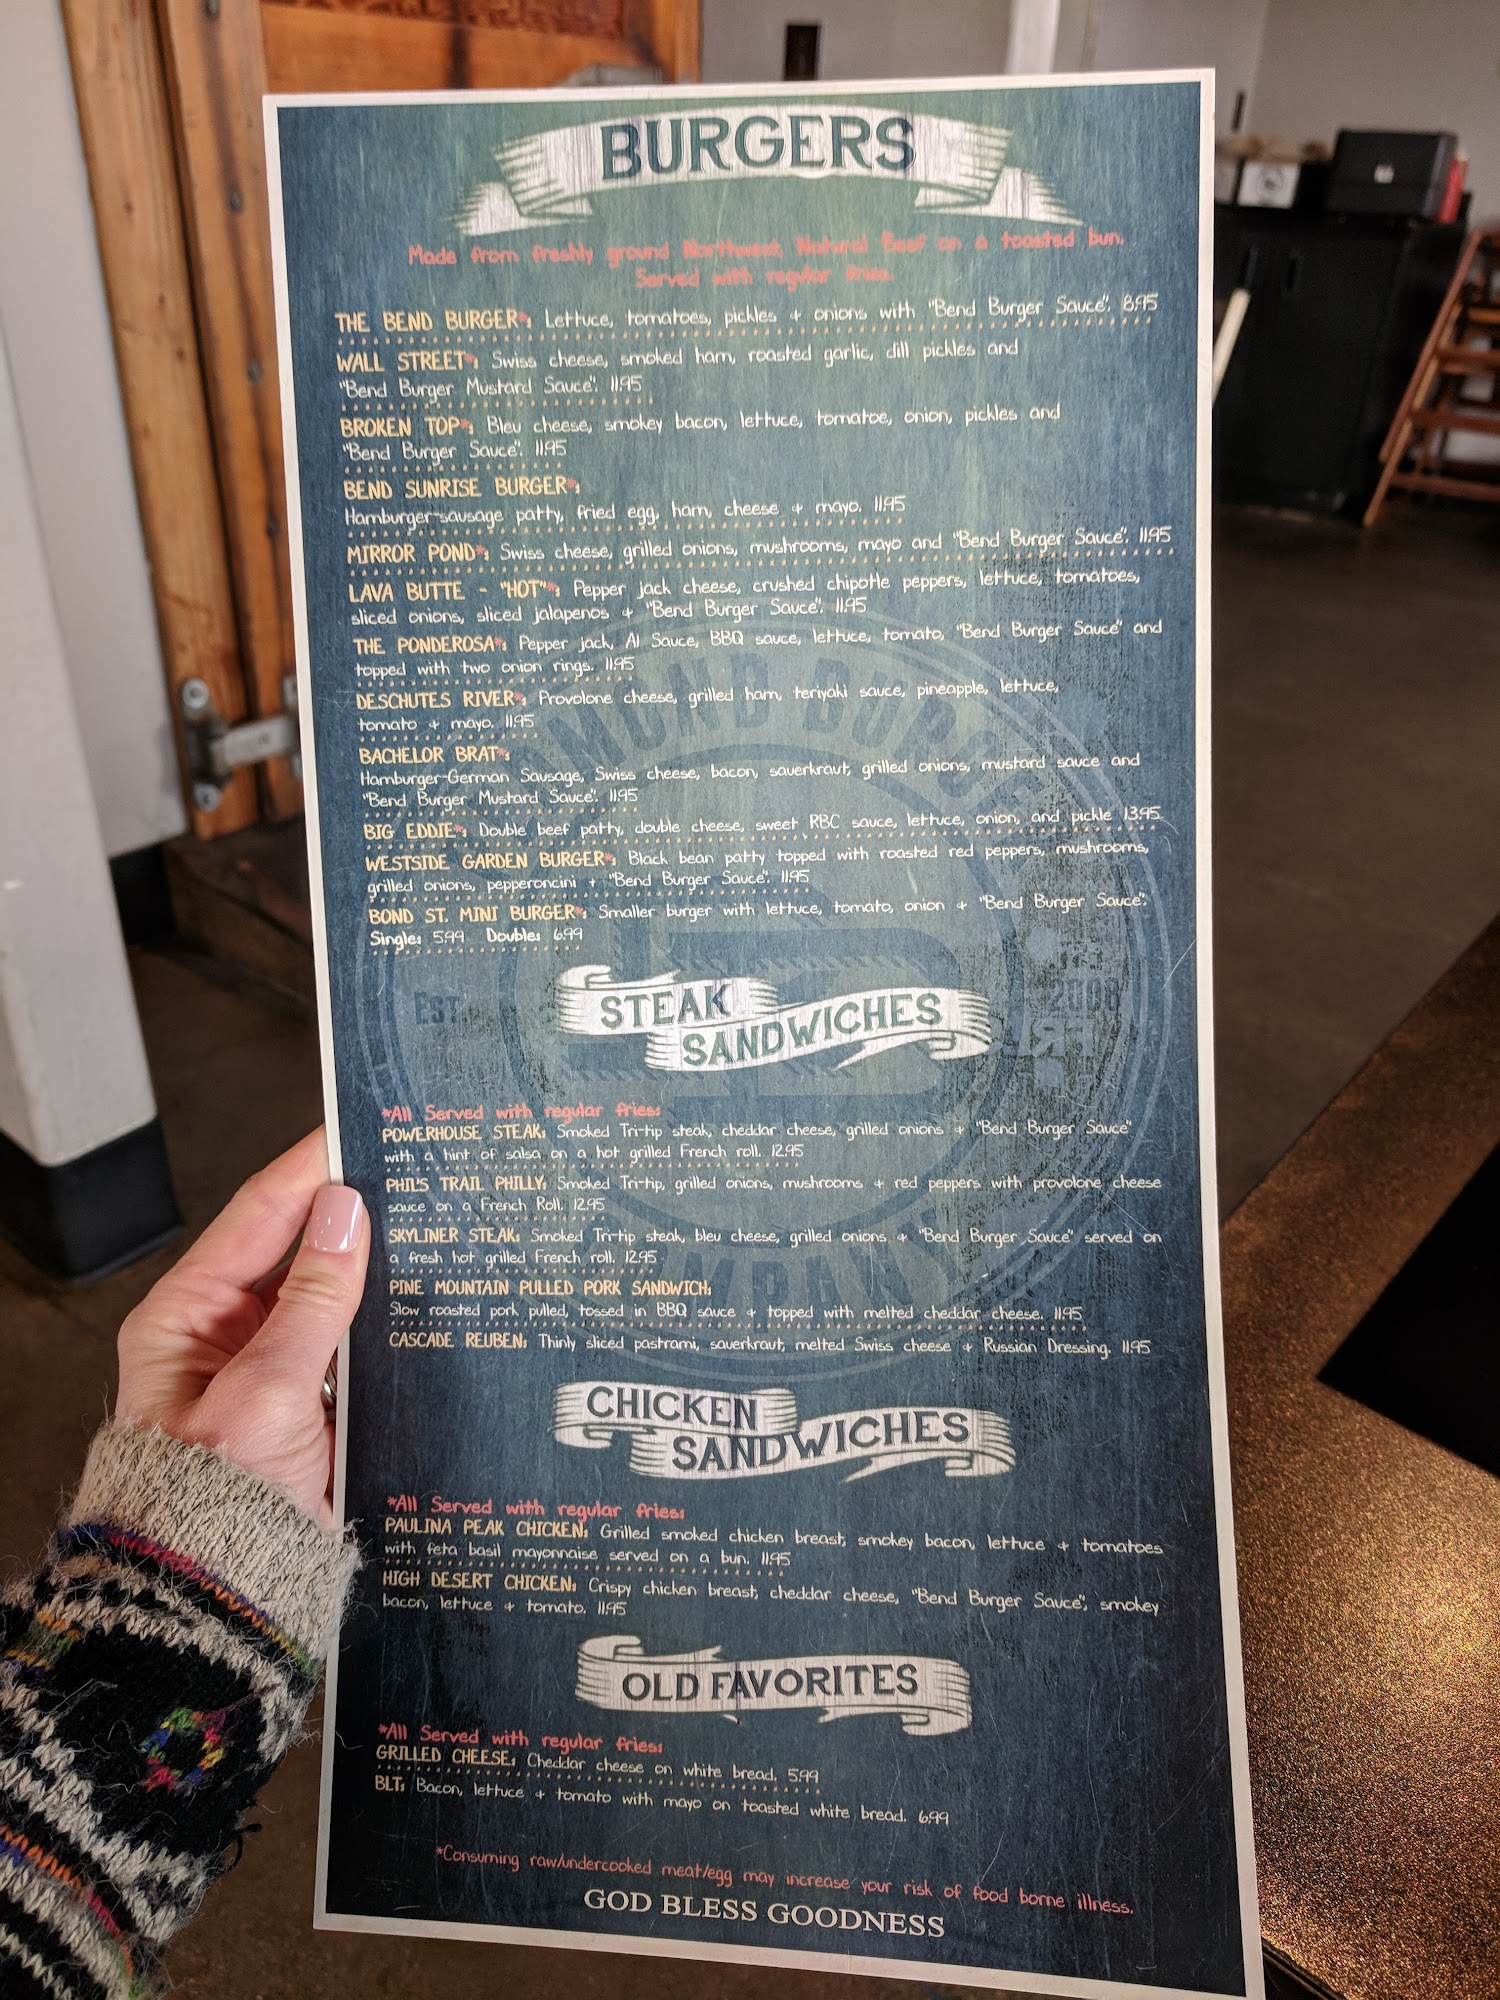 BURGERS
Made from freshly ground Northwest, Natural Beef on a toasted bun.
Served with regular fries.
THE BEND BURGER*: Lettuce, tomatoes, pickles + onions with "Bend Burger Sauce". 8.95
WALL STREET*: Swiss cheese, smoked ham, roasted garlic, dill pickles and
"Bend Burger Mustard Sauce". 11.95
BROKEN TOP*: Bleu cheese, smokey bacon, lettuce, tomatoe, onion, pickles and
"Bend Burger Sauce". 11.95
BEND SUNRISE BURGER*:
Hamburger-sausage patty, fried egg, ham, cheese + mayo. 11.95
MIRROR POND*: Swiss cheese, grilled onions, mushrooms, mayo and "Bend Burger Sauce". 11.95
LAVA BUTTE - "HOT"*: Pepper jack cheese, crushed chipotle peppers, lettuce, tomatoes,
sliced onions, sliced jalapenos + "Bend Burger Sauce". 11.95
THE PONDEROSA*: Pepper jack, A1 Sauce, BBQ sauce, lettuce, tomato, "Bend Burger Sauce" and
topped with two onion rings. 11.95
DESCHUTES RIVER*: Provolone cheese, grilled ham, teriyaki sauce, pineapple, lettuce,
tomato + mayo. 11.95
BACHELOR BRAT*:
Hamburger-German Sausage, Swiss cheese, bacon, sauerkraut, grilled onions, mustard sauce and
"Bend Burger Mustard Sauce". 11.95
BIG EDDIE*: Double beef patty, double cheese, sweet RBC sauce, lettuce, onion, and pickle 13.95
WESTSIDE GARDEN BURGER*: Black bean patty topped with roasted red peppers, mushrooms,
grilled onions, pepperoncini + "Bend Burger Sauce". 11.95
BOND ST. MINI BURGER*: Smaller burger with lettuce, tomato, onion + "Bend Burger Sauce".
Single: 5.99 Double: 6.99
EST. 2008
STEAK
SANDWICHES
*All Served with regular fries:
POWERHOUSE STEAK: Smoked Tri-tip steak, cheddar cheese, grilled onions + "Bend Burger Sauce"
with a hint of salsa on a hot grilled French roll. 12.95
PHIL'S TRAIL PHILLY: Smoked Tri-tip, grilled onions, mushrooms + red peppers with provolone cheese
sauce on a French Roll. 12.95
SKYLINER STEAK: Smoked Tri-tip steak, bleu cheese, grilled onions + "Bend Burger Sauce" served on
a fresh hot grilled French roll. 12.95
PINE MOUNTAIN PULLED PORK SANDWICH:
Slow roasted pork pulled, tossed in BBQ sauce + topped with melted cheddar cheese. 11.95
CASCADE REUBEN: Thinly sliced pastrami, sauerkraut, melted Swiss cheese + Russian Dressing. 11.95
CHICKEN
SANDWICHES
*All Served with regular fries:
PAULINA PEAK CHICKEN: Grilled smoked chicken breast, smokey bacon, lettuce + tomatoes
with feta basil mayonnaise served on a bun. 11.95
HIGH DESERT CHICKEN: Crispy chicken breast, cheddar cheese, "Bend Burger Sauce", smokey
bacon, lettuce + tomato. 11.95
OLD FAVORITES
*All Served with regular fries:
GRILLED CHEESE: Cheddar cheese on white bread. 5.99
BLT: Bacon, lettuce + tomato with mayo on toasted white bread. 6.99
*Consuming raw/undercooked meat/egg may increase your risk of food borne illness.
GOD BLESS GOODNESS